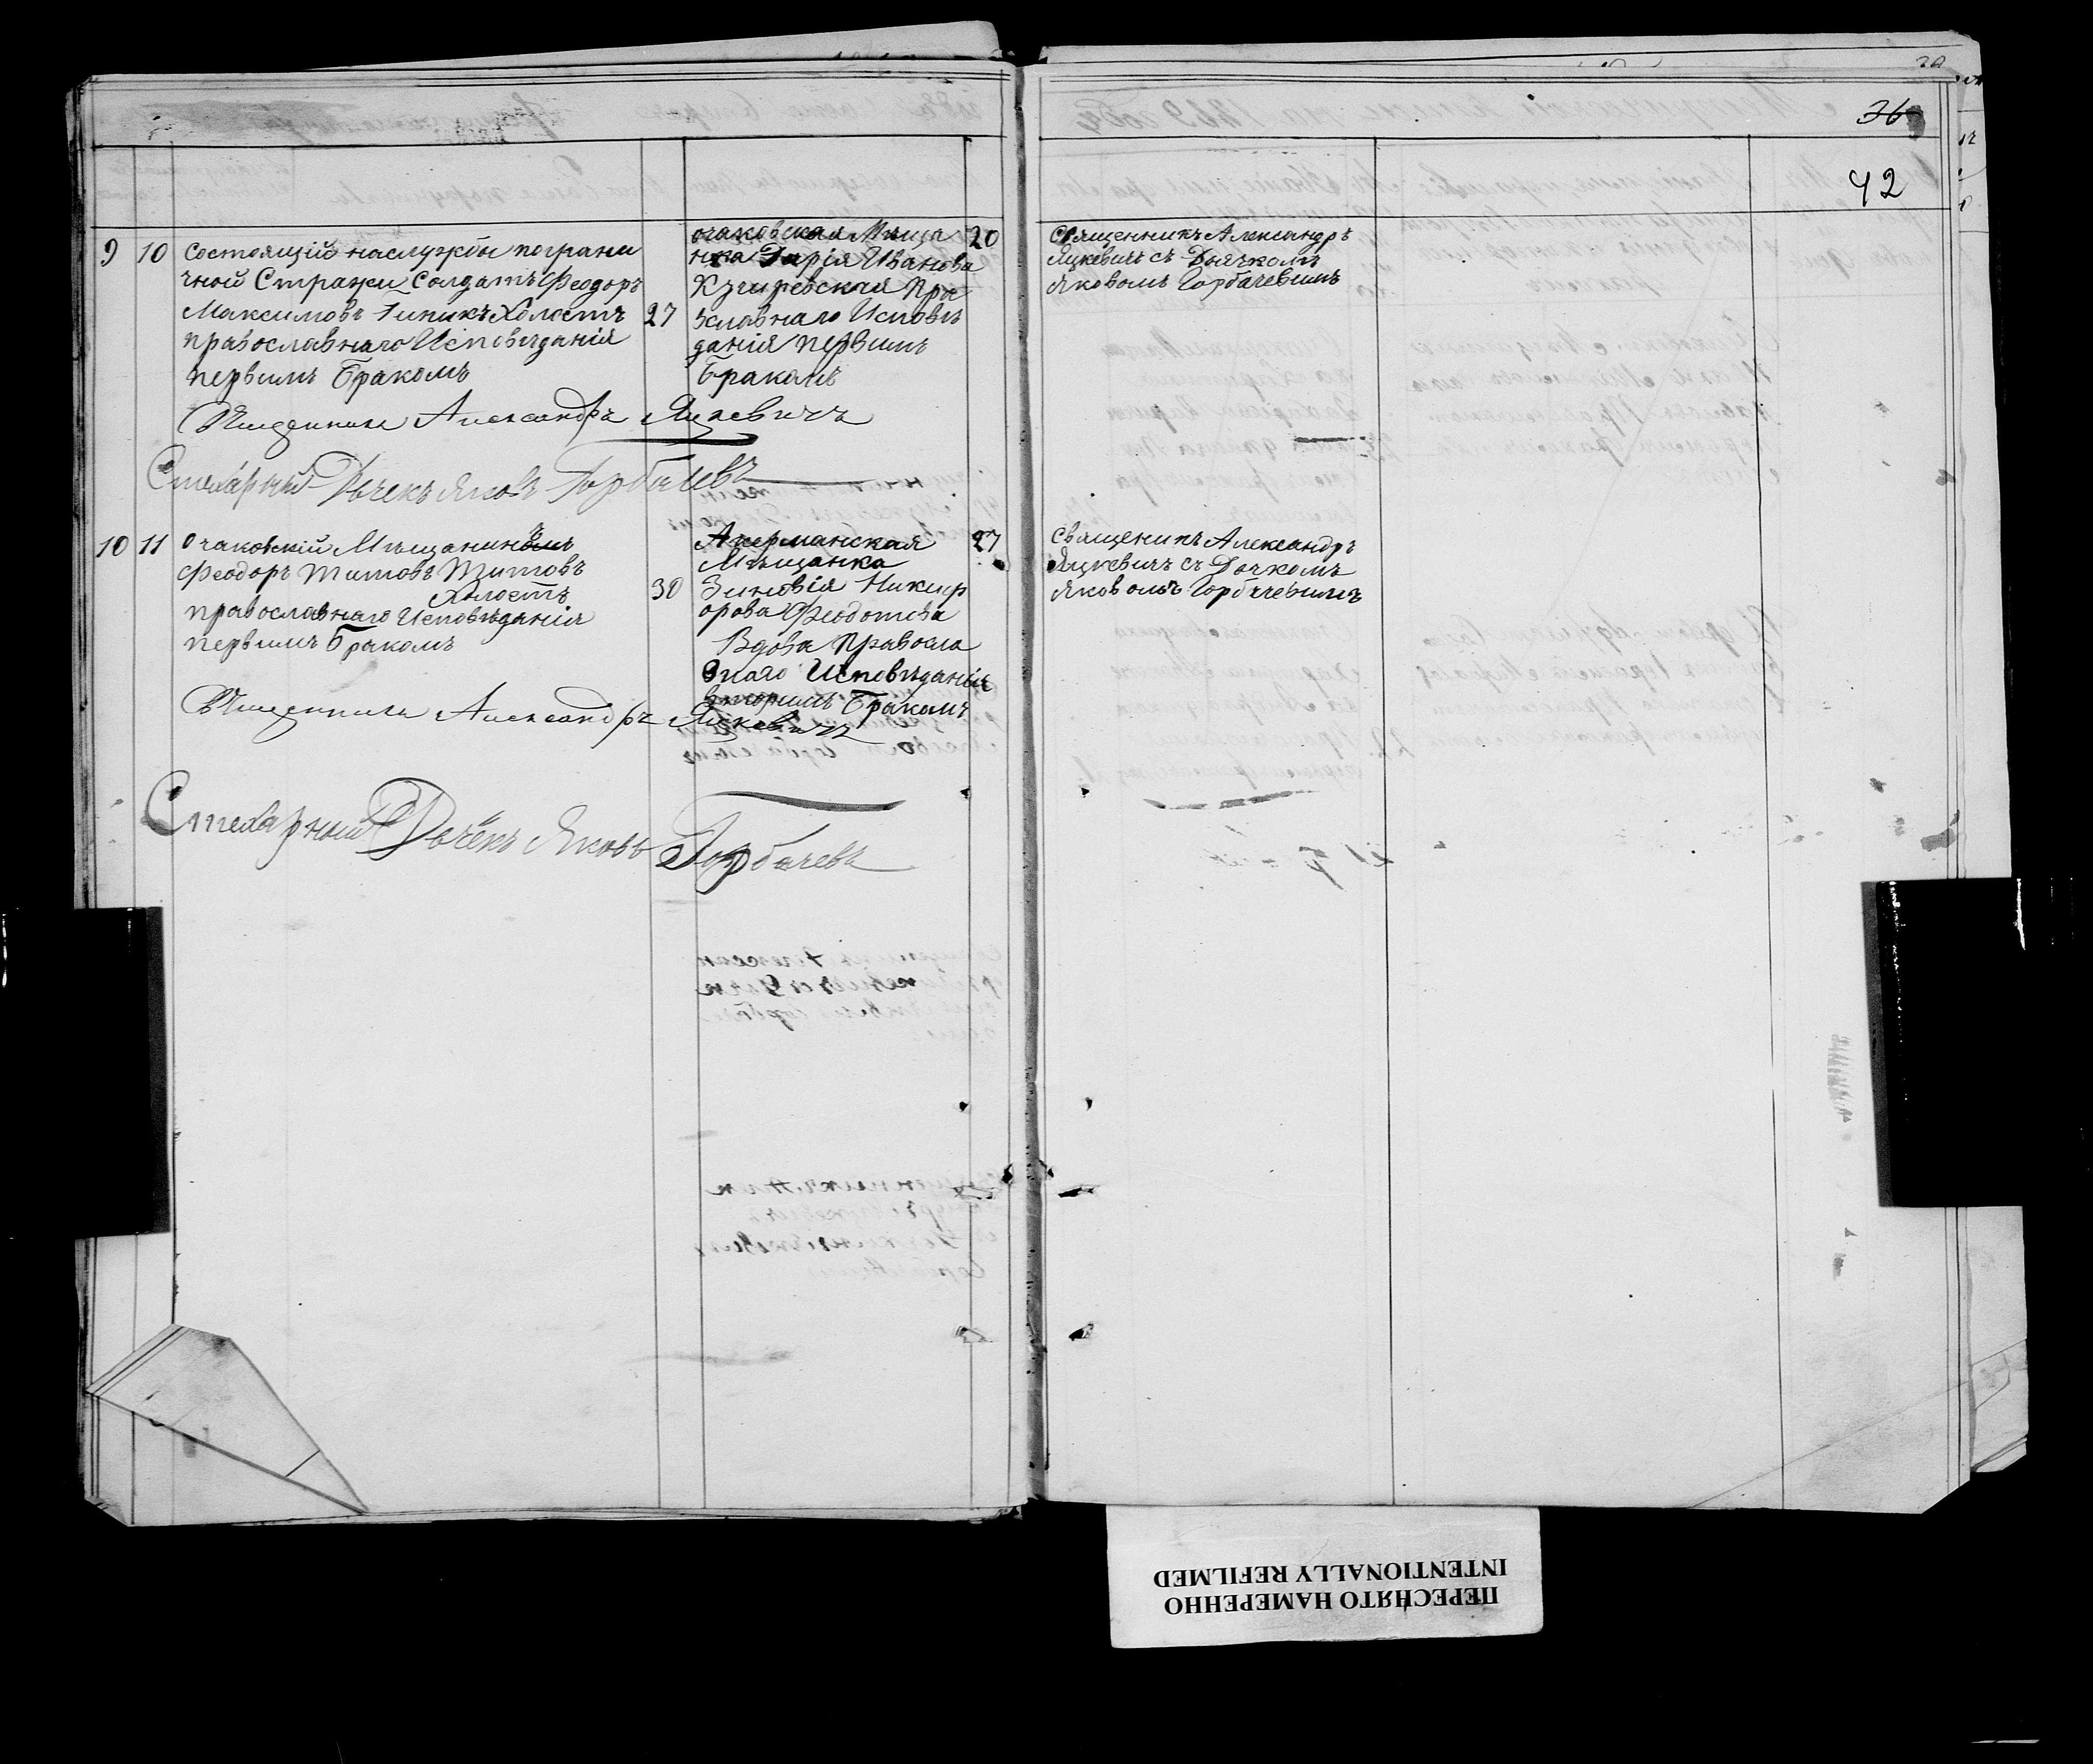 36
42
9 10 состоящій наслужбы пограни
чной Стражи Солдатъ Феодоръ
Максимовъ Холостъ 27
православнаго Исповѣданія
первымъ Бракомъ
очаковская Мѣща 20
нка Дарія Иванова
Кучиревская Пра
вславнаго Исповѣ
данія первымъ
Бракомъ
Священникъ Александръ
Яцкевичъ съ Дьячкомъ
Яковомъ Горбачевымъ
Священникъ Александръ Яцкевичъ
Стихарный Дьячекъ Яковъ Горбачевъ
10 11 Очаковскій Мѣщанинъ
Феодоръ Титовъ Титовъ
Холостъ 30
православнаго Исповѣданія
первымъ Бракомъ
Акерманская 27
Мѣщанка
Зиновія Никиф
орова Феодотова
Вдова Правосла
внаго Исповѣданія
вторымъ Бракомъ
Священикъ Александръ
Яцкевичъ съ Дячкомъ
Яковомъ Горбачевымъ
Священникъ Александръ Яцкевичъ
Стихарный Дьячекъ Яковъ Горбачевъ
ПЕРЕСНЯТО НАМЕРЕННО
INTENTIONALLY REFILMED